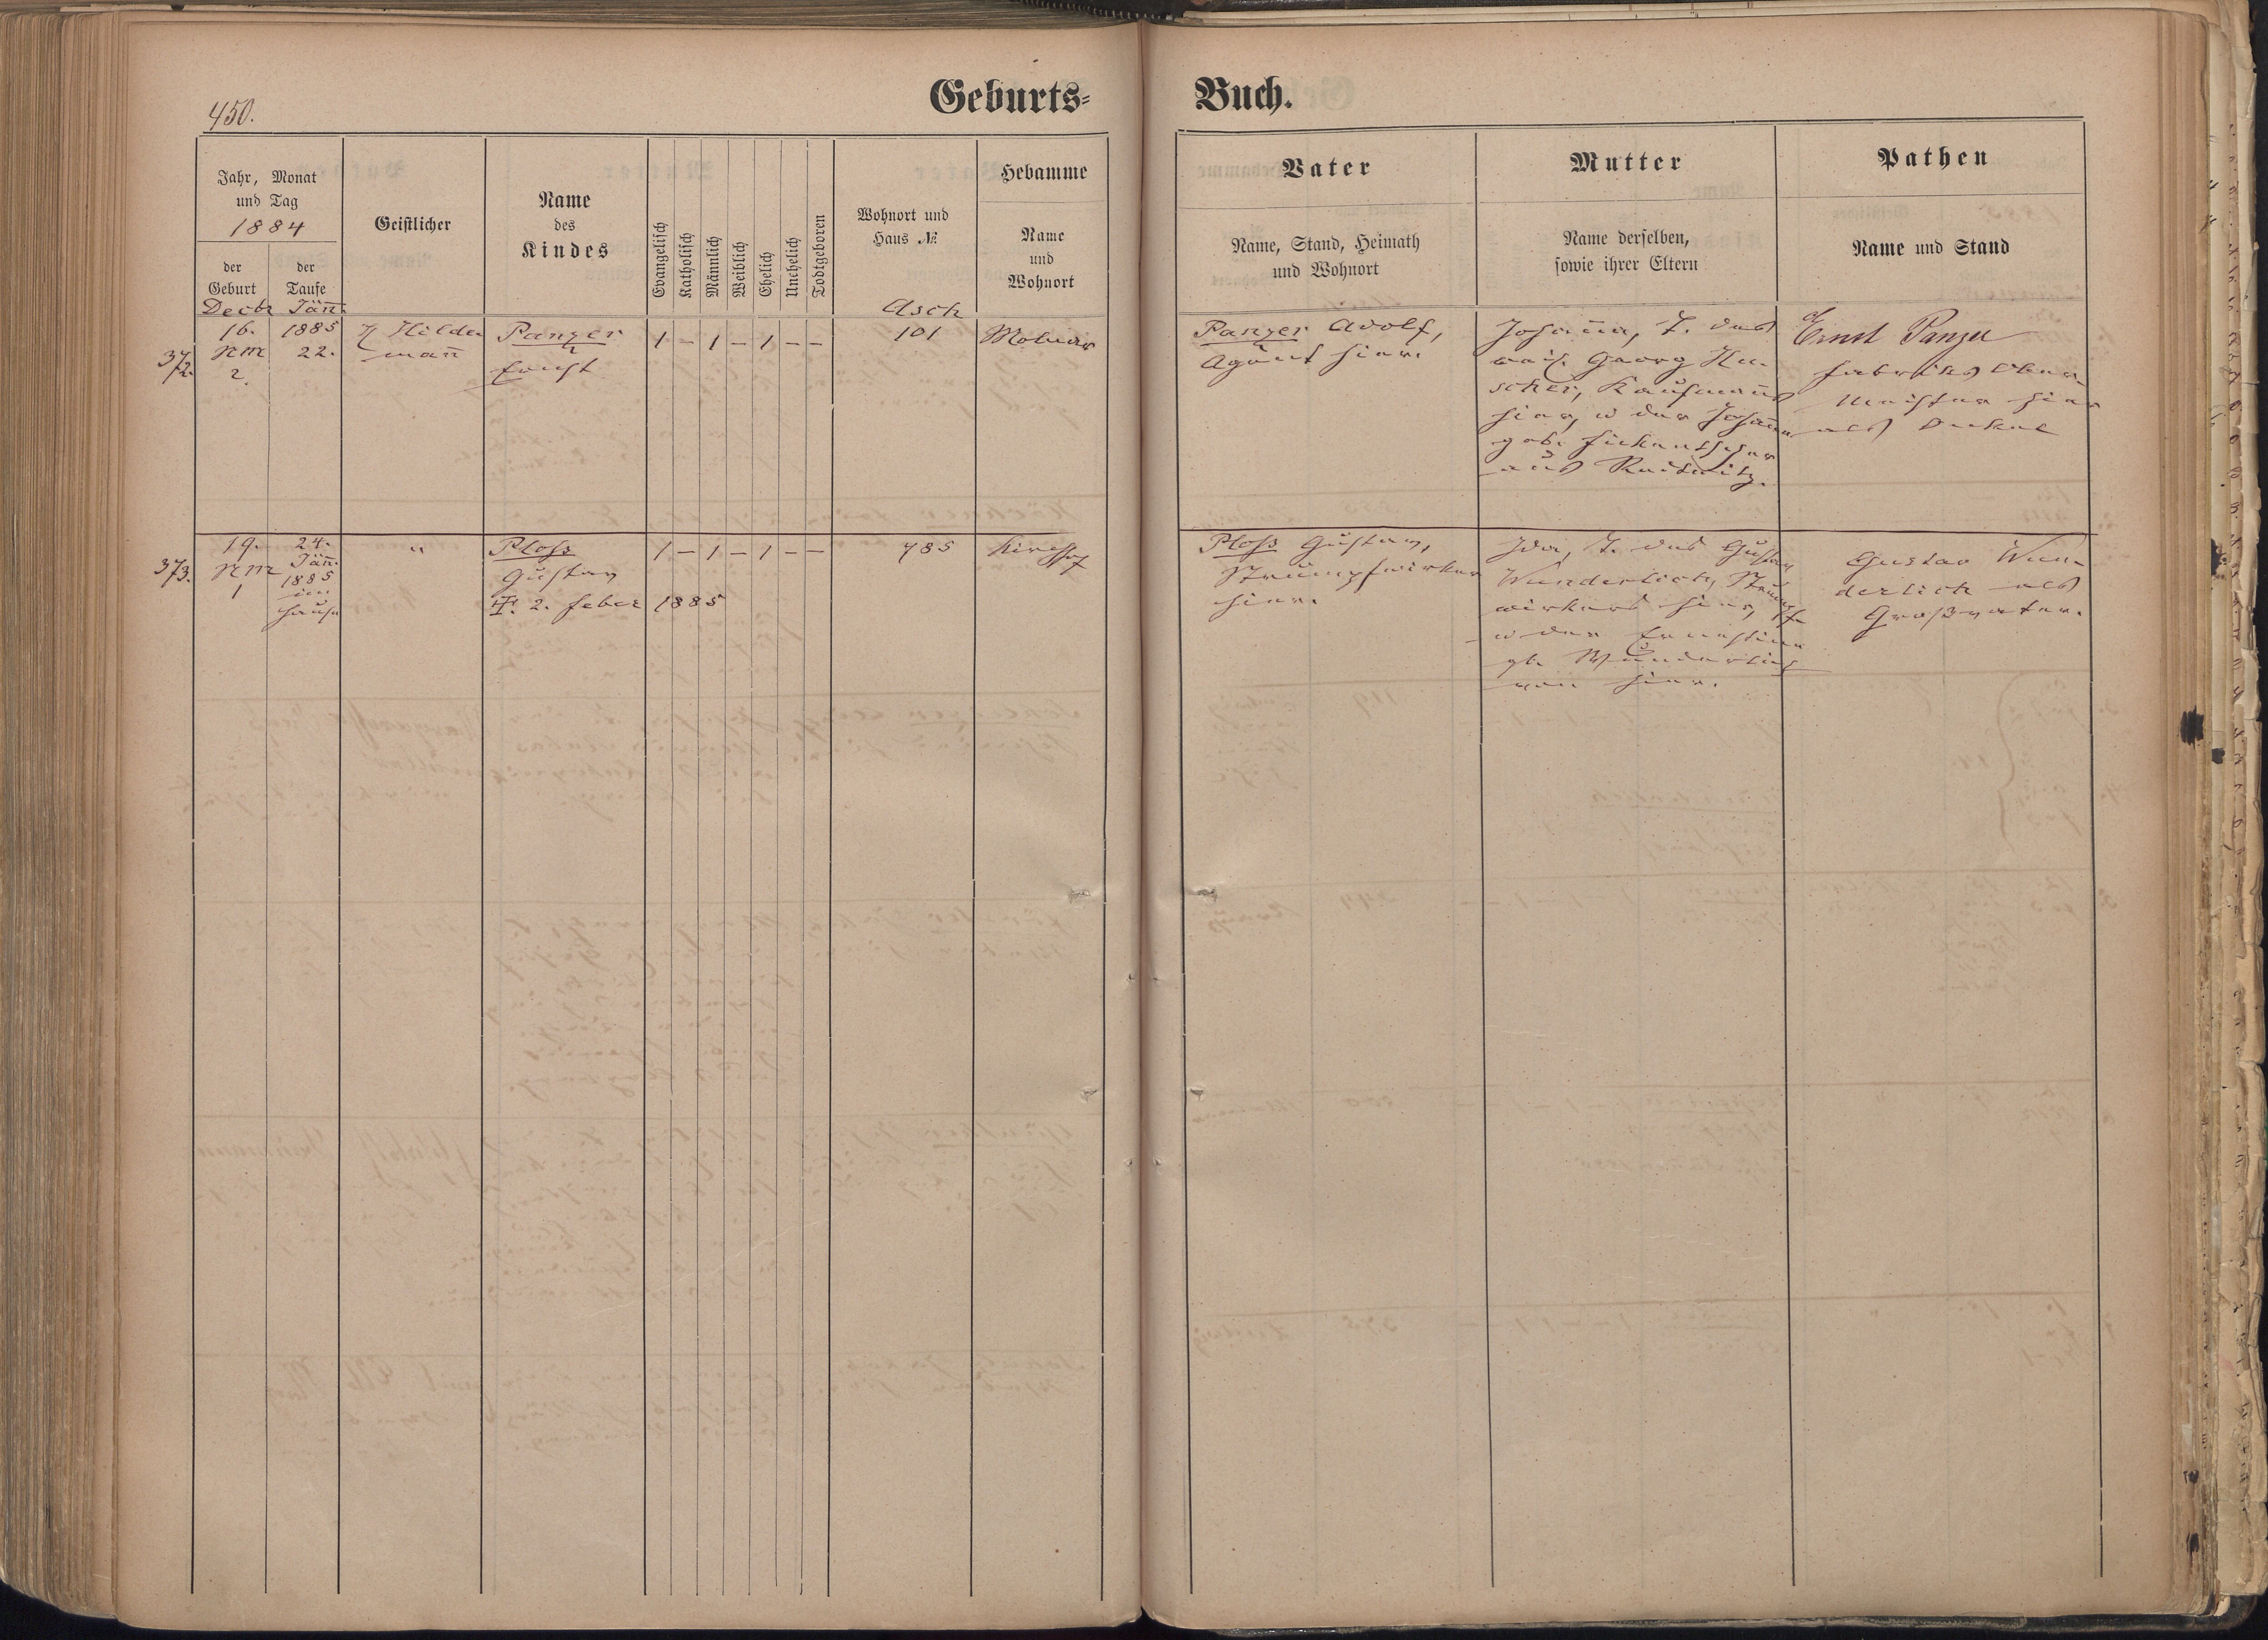 450.
Geburts- Buch.
Jahr, Monat
und Tag
1884
der
Geburt
der
Taufe
Geistlicher
Name
des
Kindes
Evangelisch
Katholisch
Männlich
Weiblich
Ehelich
Unehelich
Todtgeboren
Wohnort und
Haus №
Hebamme
Name
und
Wohnort
Vater
Name, Stand, Heimath
und Wohnort
Mutter
Name derselben,
sowie ihrer Eltern
Pathen
Name und Stand
Decbr
Jän̅.
Asch
372.
16.
NM
2.
1885
22.
H Hilde
man̅
Panzer
Ernst
1 – 1 – 1 – –
101
Molnar
Panzer Adolf,
Agent hier.
Johan̅a, T. des
weil. Georg Hu-
scher, Kaufman̅s
hier, u der Johan̅a
geb. Fickentscher
aus
Ernst Panzer
Fabriks Ober-
meister hier
als Onkel
373.
19.
NM
1
24.
Jän̅.
1885
im
Hause
"
Ploss
Gustav
†. 2. Feber 1885
1 – 1 – 1 – –
785
Kirchhof
Ploss Gustav,
Strumpfwirker
hier.
Ida, T. des Gustav
Wunderlich, Strumpf-
wirkers hier,
u der Ernestine
gb. Wunderlich
von hier.
Gustav Wun-
derlich als
Großvater.